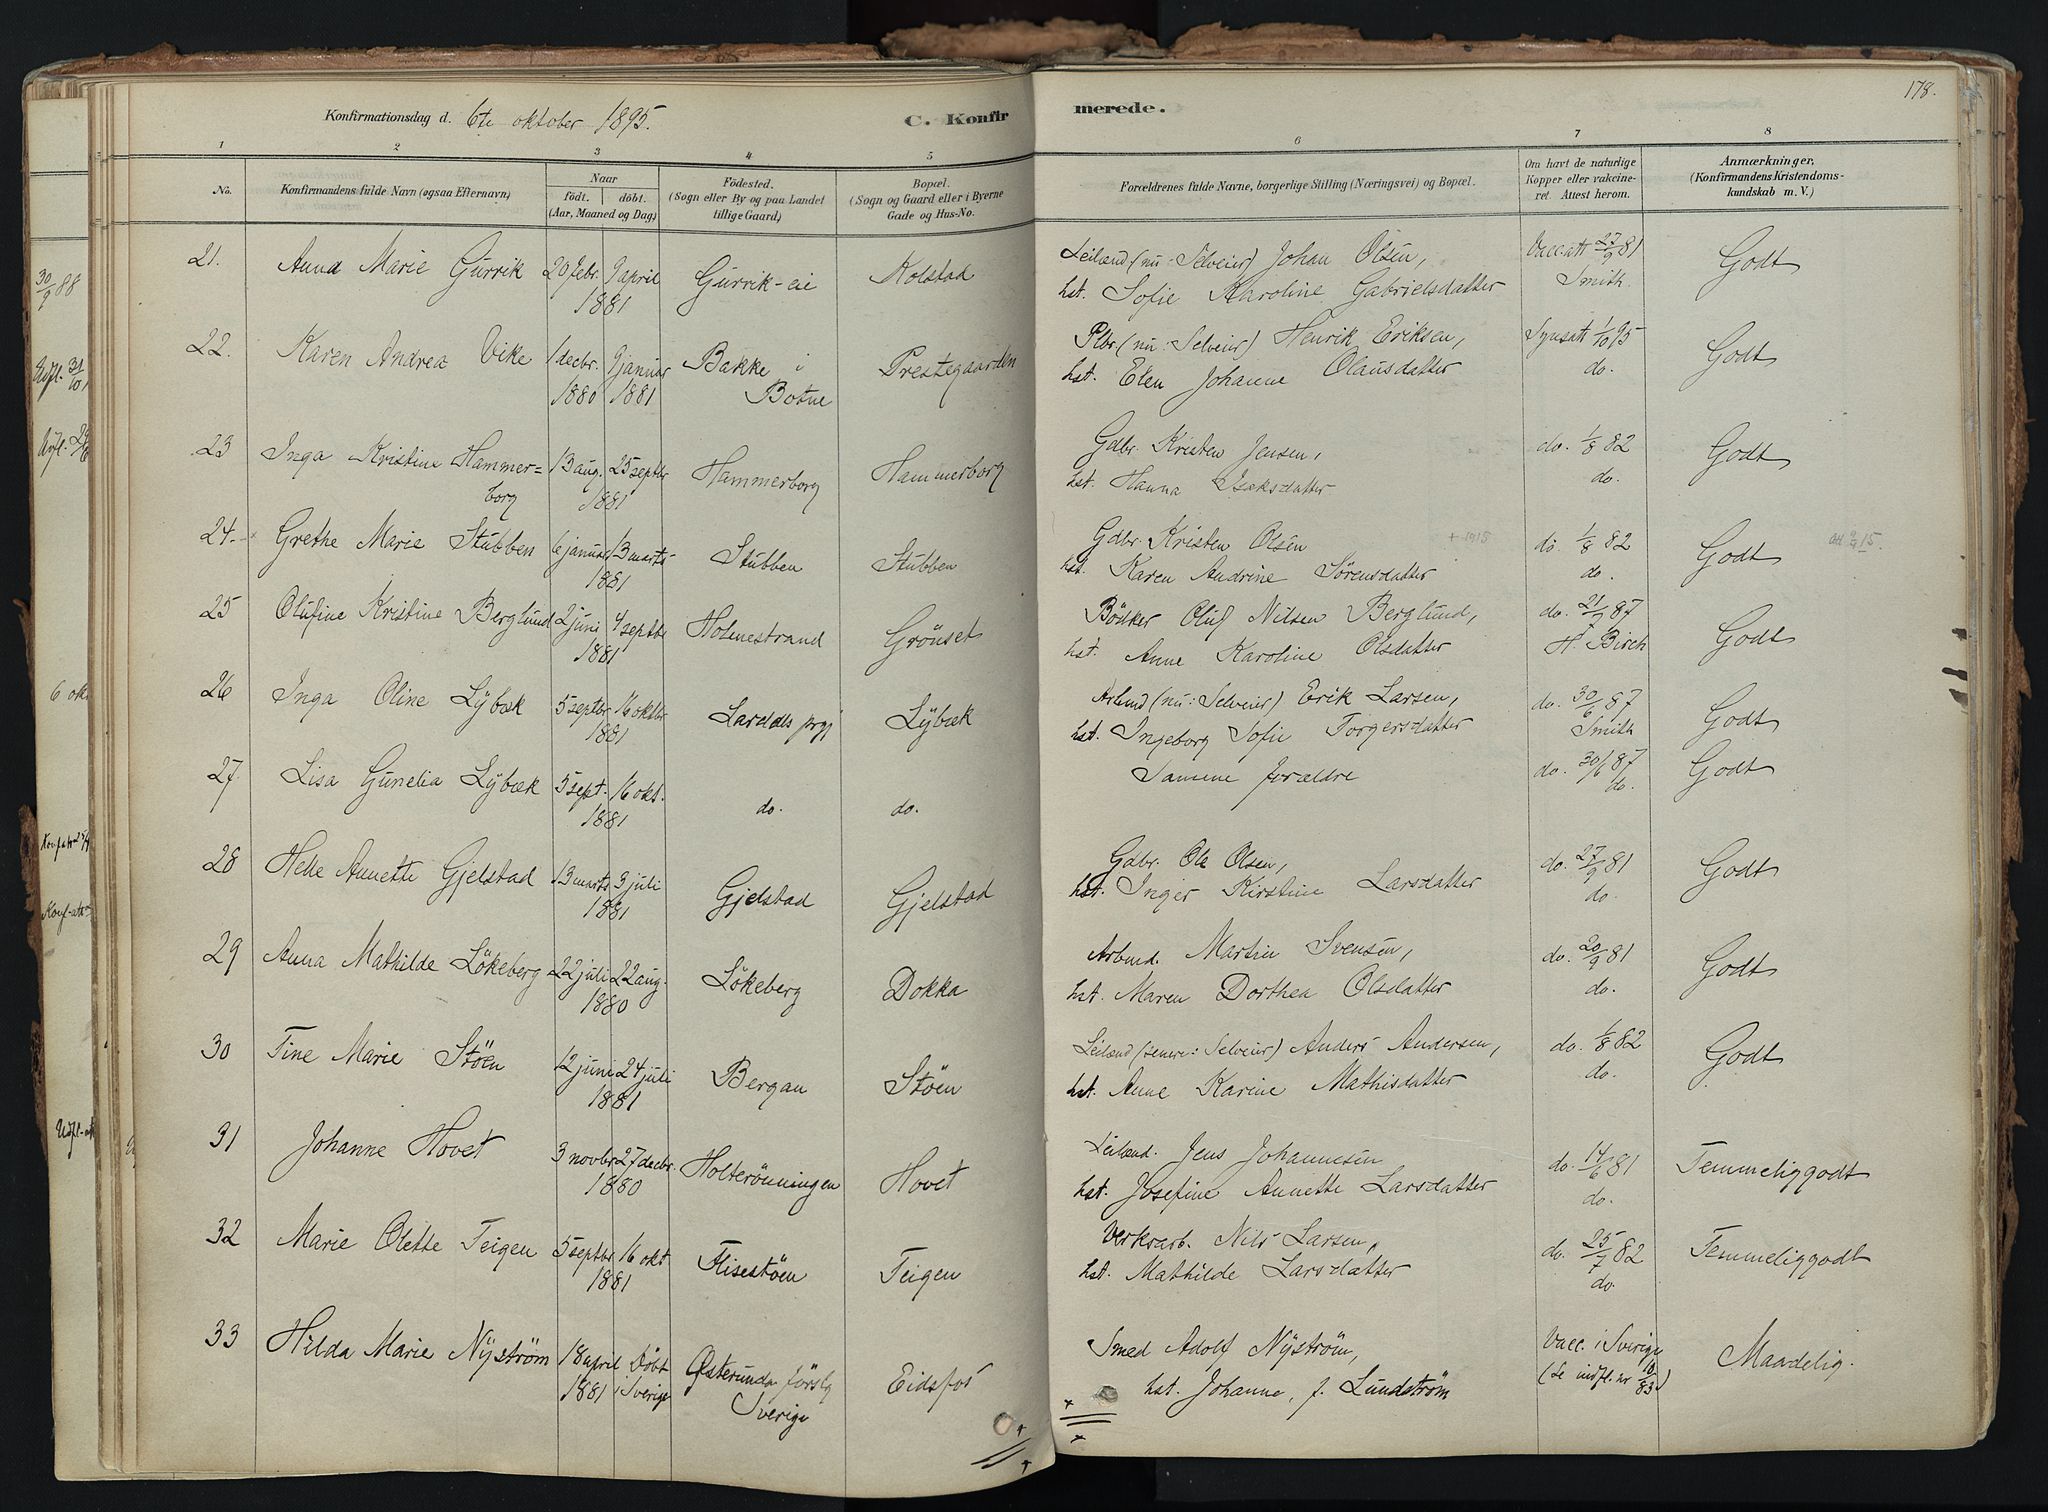 178.
Konfirmationsdag d. 6te oktober 1895.
C. Konfirmerede.
1 2 3 4 5 6 7 8
No.
Konfirmandens fulde Navn (ogsaa Efternavn)
Naar
födt. döbt.
(Aar, Maaned og Dag)
Födested.
(Sogn eller By og paa Landet
tillige Gaard)
Bopæl.
(Sogn og Gaard eller i Byerne
Gade og Hus-No.
Forældrenes fulde Navne, borgerlige Stilling (Næringsvei) og Bopæl.
Om havt de naturlige
Kopper eller vakcine-
ret. Attest herom.
Anmærkninger.
(Konfirmandens Kristendoms-
kundskab m. V.)
21. Anna Marie Gurrik 20 febr. 9 april Gurrik-eie Kolstad Leilænd (nu: Selveier) Johan Olsen, Vacc.att 27/9 81 Godt
1881 hst. Sofie Karoline Gabrielsdatter Smith.
22. Karen Andrea Vike 1 decbr. 9 januar Bakke i Prestegaarden Plbr. (nu: Selveier) Henrik Eriksen, Synsatt 1/10 95 Godt
1880 1881 Botne hst. Elen Johanne Olausdatter do.
23 Inga Kristine Hammer= 13 aug. 25 septbr Hammerborg Hammerborg Gdbr. Kristen Jensen, do. 1/8 82 Godt
borg 1881 hst. Hanna Isaksdatter do.
24. Grethe Marie Stubben 6 januar 13 marts Stubben Stubben Gdbr. Kristen Olsen + 1915 do. 1/8 82 Godt
1881 hst. Karen Andrine Sörensdatter do.
25 Olufine Kristine Berglund 2 juni 4 septbr Holmestrand Grönset Bödker Oluf Nilsen Berglund, do. 21/9 87 Godt
1881 hst. Anne Karoline Olsdatter H. Birch
26 Inga Oline Lÿbæk 5 septbr 16 oktbr Lardals prgj Lÿbæk Arbmd (nu: Selveier) Erik Larsen, do. 30/6 87 Godt
1881 hst. Ingeborg Sofie Torgersdatter Smith
27. Lisa Gunelia Lÿbæk 5 sept. 16 okt. do. do. Samme forældre do. 30/6 87 Godt
1881 do.
28 Helle Annette Gjelstad 13 marts 3 juli Gjelstad Gjelstad Gdbr. Ole Olsen, do. 27/9 81 Godt
1881 hst. Inger Kirstine Larsdatter do.
29 Anna Mathilde Lökeberg 22 juli 22 aug. Lökeberg Dokka Arbmd. Martin Svensen, do. 20/9 81 Godt
1880 hst. Maren Dorthea Olsdatter do.
30 Tine Marie Stöen 12 juni 24 juli Bergan Stöen Leilænd (senere: Selveier) Anders Andersen, do. 1/8 82 Godt
1881 hst. Anne Karine Mathisdatter do.
31 Johanne Hovet 3 novbr 27 decbr. Holterönningen Hovet Leilænd. Jens Johannesen do. 14/6 81 Temmelig godt
1880 hst. Josefine Annette Larsdatter do.
32 Marie Olette Teigen 5 septbr 16 okt Flisestöen Teigen Verksarb. Nils Larsen, do. 25/7 82 Temmelig godt
1881 hst. Mathilde Larsdatter do.
33 Hilda Marie Nÿström 18 april Döbt Østerunda försly Eidsfos Smed Adolf Nÿström, Vacc. i Sverige Maadelig.
1881 i Sverige Sverige hst. Johanne, f. Lundström (Se indfl. nr 10/83)
30/9 88
Udfl. 31/10
Udfl.
6 okt
Konf-att
Udfl-att